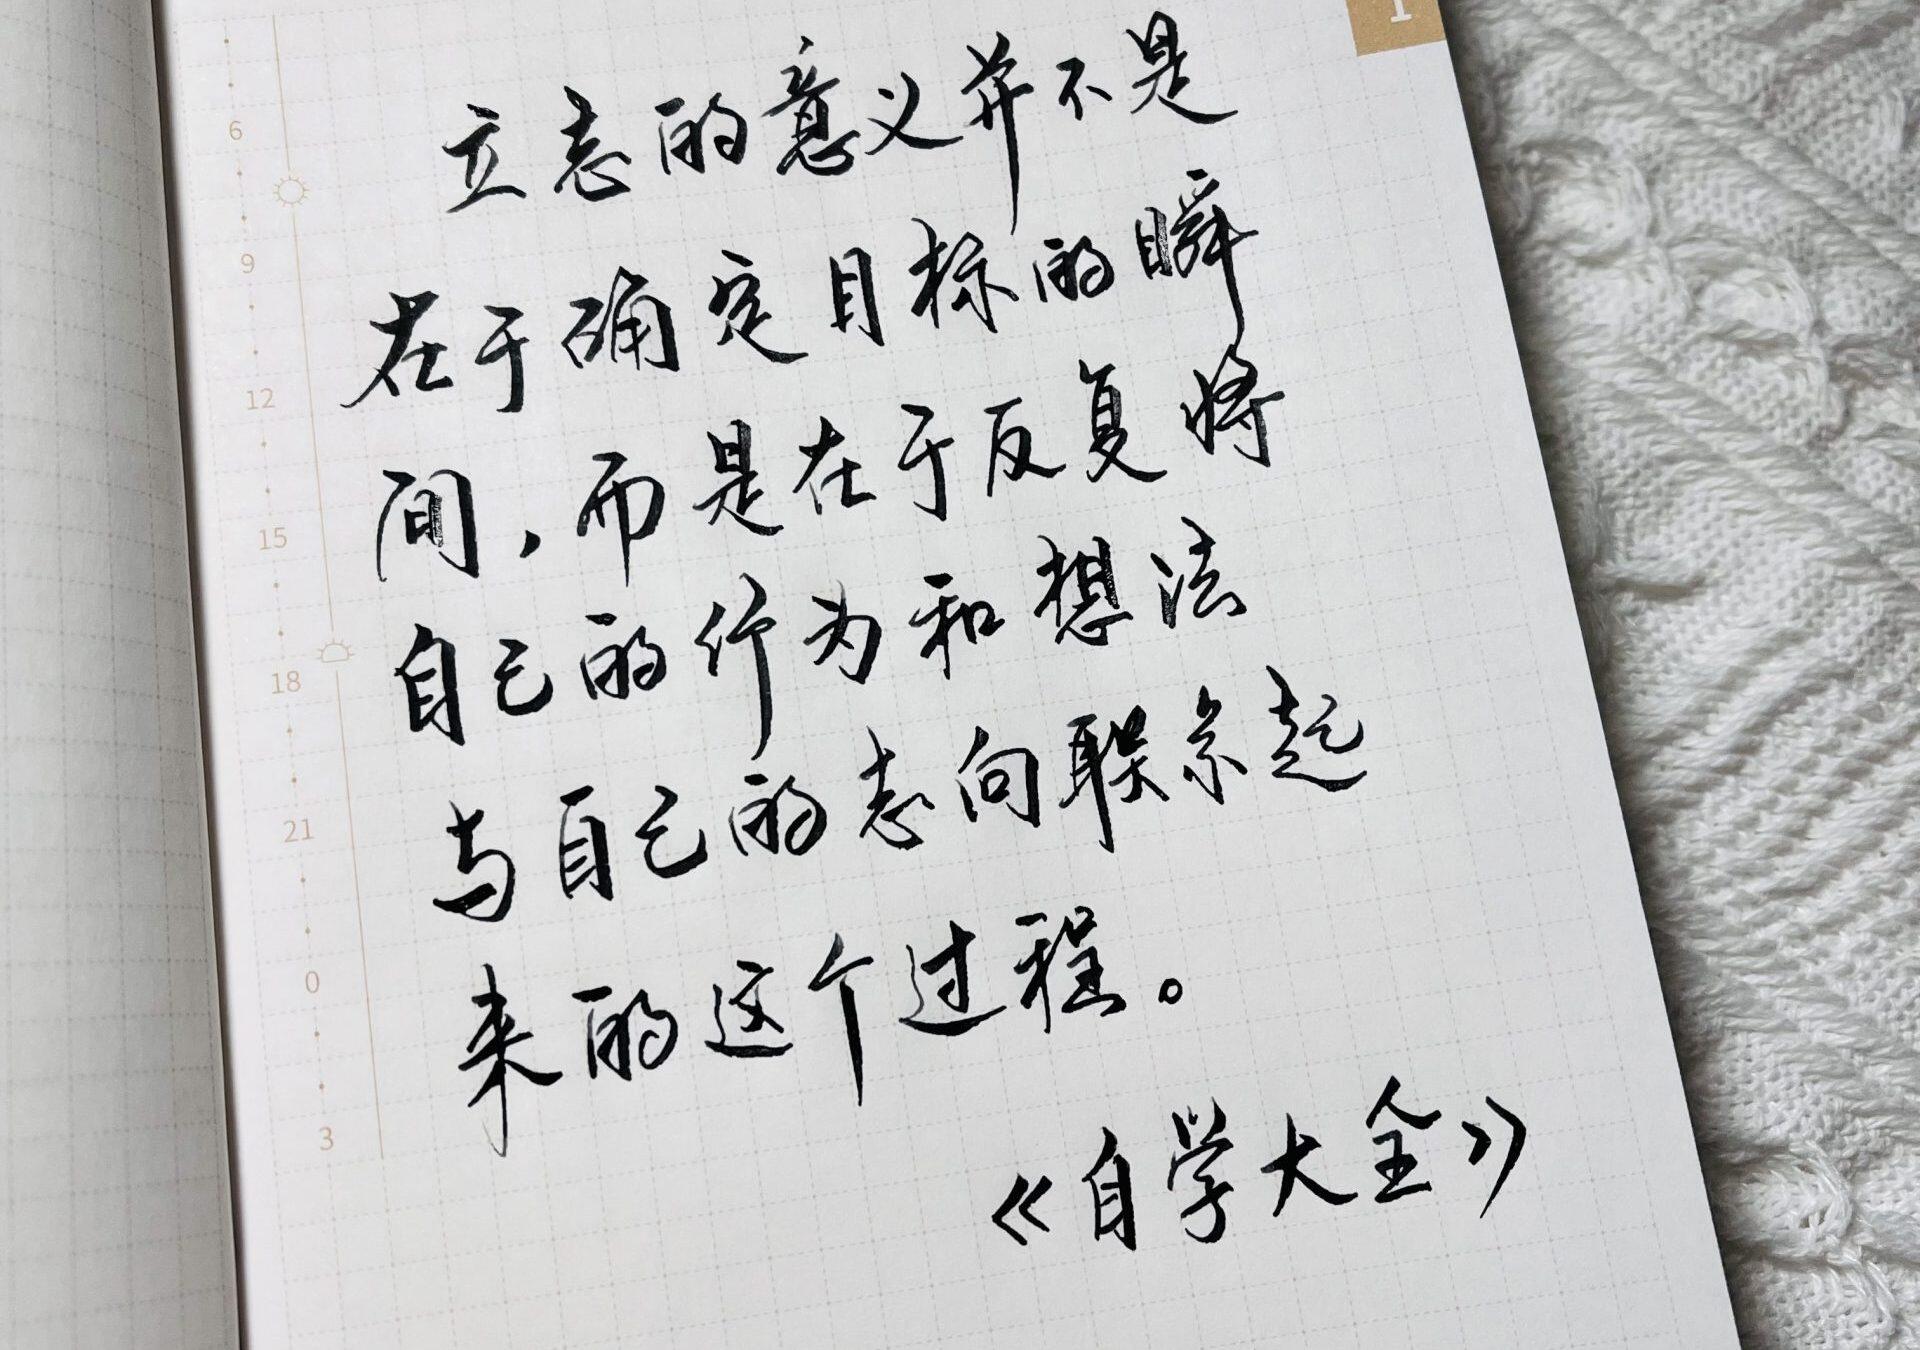 1
6
9
12
15
18
21
0
3
立志的意义并不是
在于确定目标的瞬
间，而是在于反复将
自己的行为和想法
与自己的志向联系起
来的这个过程。
《自学大全》